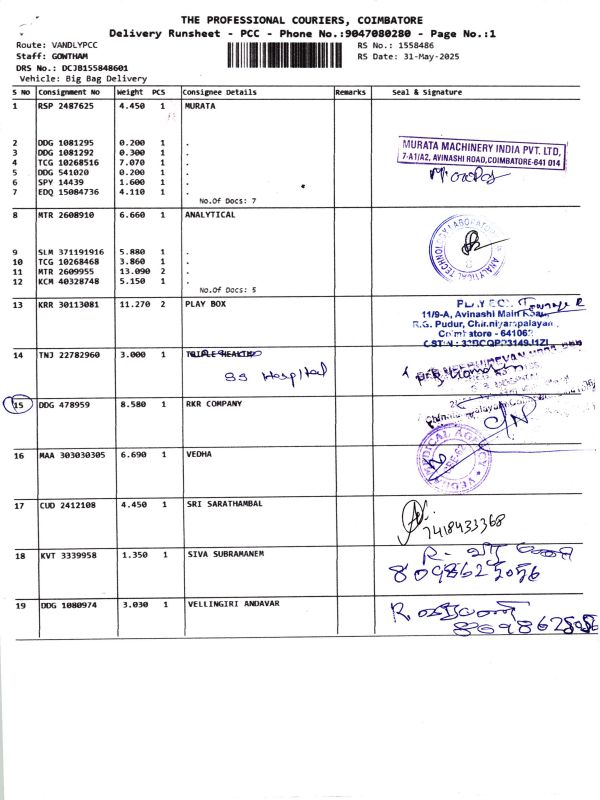 THE PROFESSIONAL COURIERS, COIMBATORE
Delivery Runsheet - PCC - Phone No.:9047080280 - Page No.:1
Route: VANDLYPCC
Staff: GOWTHAM
DRS No.: DCJB155848601
Vehicle: Big Bag Delivery
RS No.: 1558486
RS Date: 31-May-2025
S No Consignment No Weight PCS Consignee Details Remarks Seal & Signature
1 RSP 2487625 4.450 1 MURATA
2 DDG 1081295 0.200 1 .
3 DDG 1081292 0.300 1 .
4 TCG 10268516 7.070 1 .
5 DDG 541020 0.200 1 .
6 SPY 14439 1.600 1 .
7 EDQ 15084736 4.110 1 .
No.Of Docs: 7
MURATA MACHINERY INDIA PVT. LTD,
7-A1/A2, AVINASHI ROAD, COIMBATORE-641 014
8 MTR 2608910 6.660 1 ANALYTICAL
9 SLM 371191916 5.880 1 .
10 TCG 10268468 3.860 1 .
11 MTR 2609955 13.090 2 .
12 KCM 40328748 5.150 1 .
No.Of Docs: 5
13 KRR 30113081 11.270 2 PLAY BOX
11/9-A, Avinashi Main Road,
R.G. Pudur, Chinniyampalayam,
Coimbatore - 64106
14 TNJ 22782960 3.000 1 TRIPLE HEALTH
SS Hospital
15 DDG 478959 8.580 1 RKR COMPANY
16 MAA 303030305 6.690 1 VEDHA
17 CUD 2412108 4.450 1 SRI SARATHAMBAL
7418433368
18 KVT 3339958 1.350 1 SIVA SUBRAMANEM
8098625056
19 DDG 1080974 3.030 1 VELLINGIRI ANDAVAR
8098625056